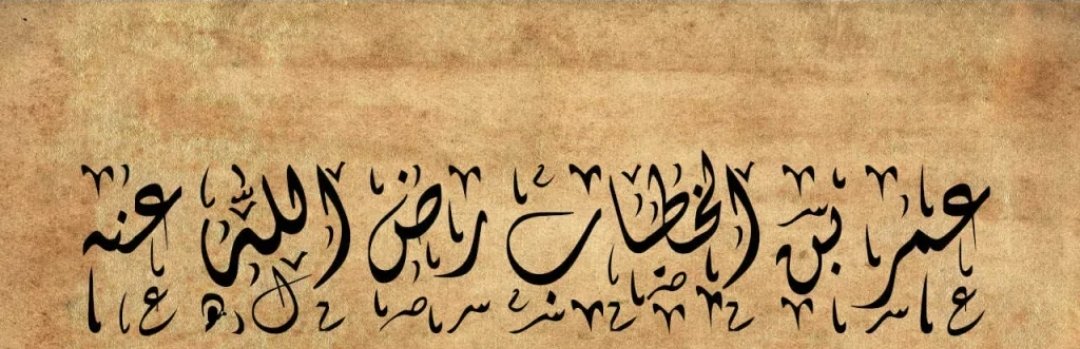 عمر بن الخطاب رضي الله عنه